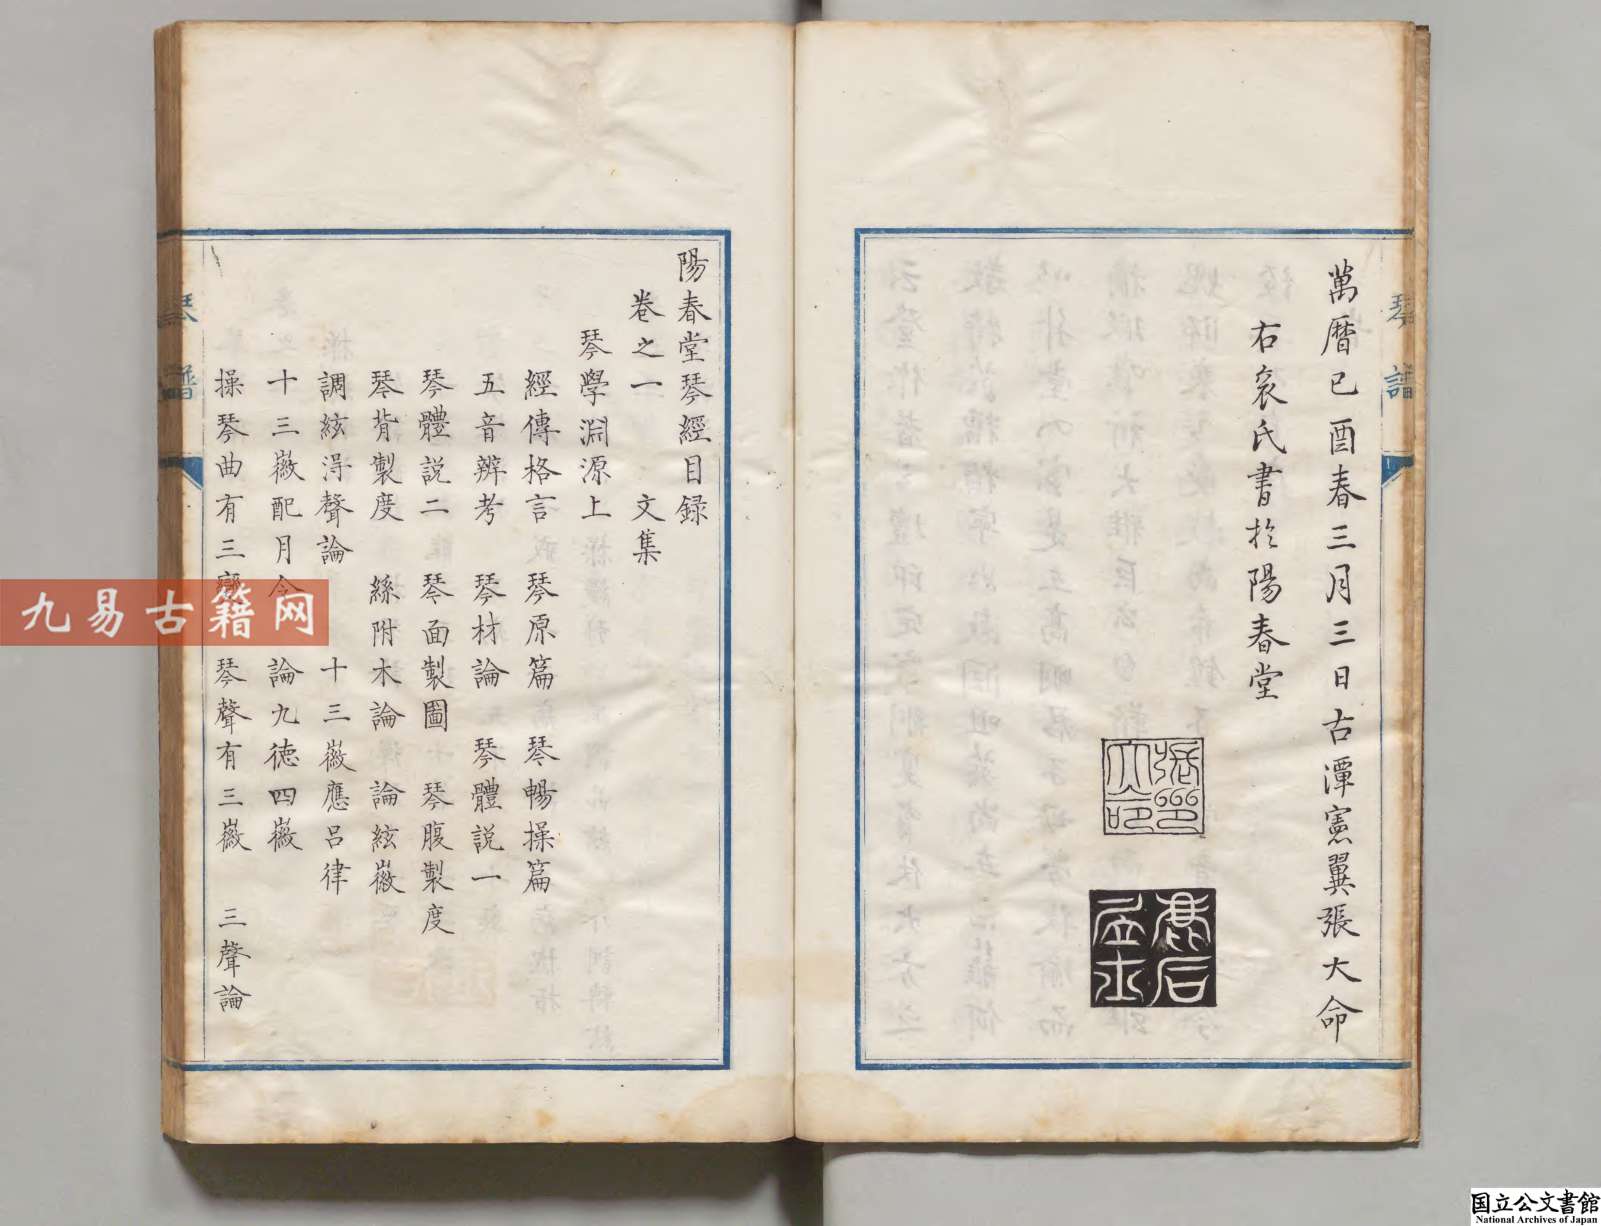 萬曆己酉春三月三日古潭憲翼張大命
右袞氏書於陽春堂
張大命印
琴譜
陽春堂琴經目録
卷之一 文集
琴學淵源上
經傳格言 琴原篇 琴暢操篇
五音辨考 琴材論 琴體説一
琴體説二 琴面製圖 琴腹製度
琴背製度 絲附木論 論絃徽
調絃淂聲論 十三徽應呂律
十三徽配月令 論九徳四徽
操琴曲有三 琴聲有三徽 三聲論
琴譜
九易古籍网
国立公文書館
National Archives of Japan